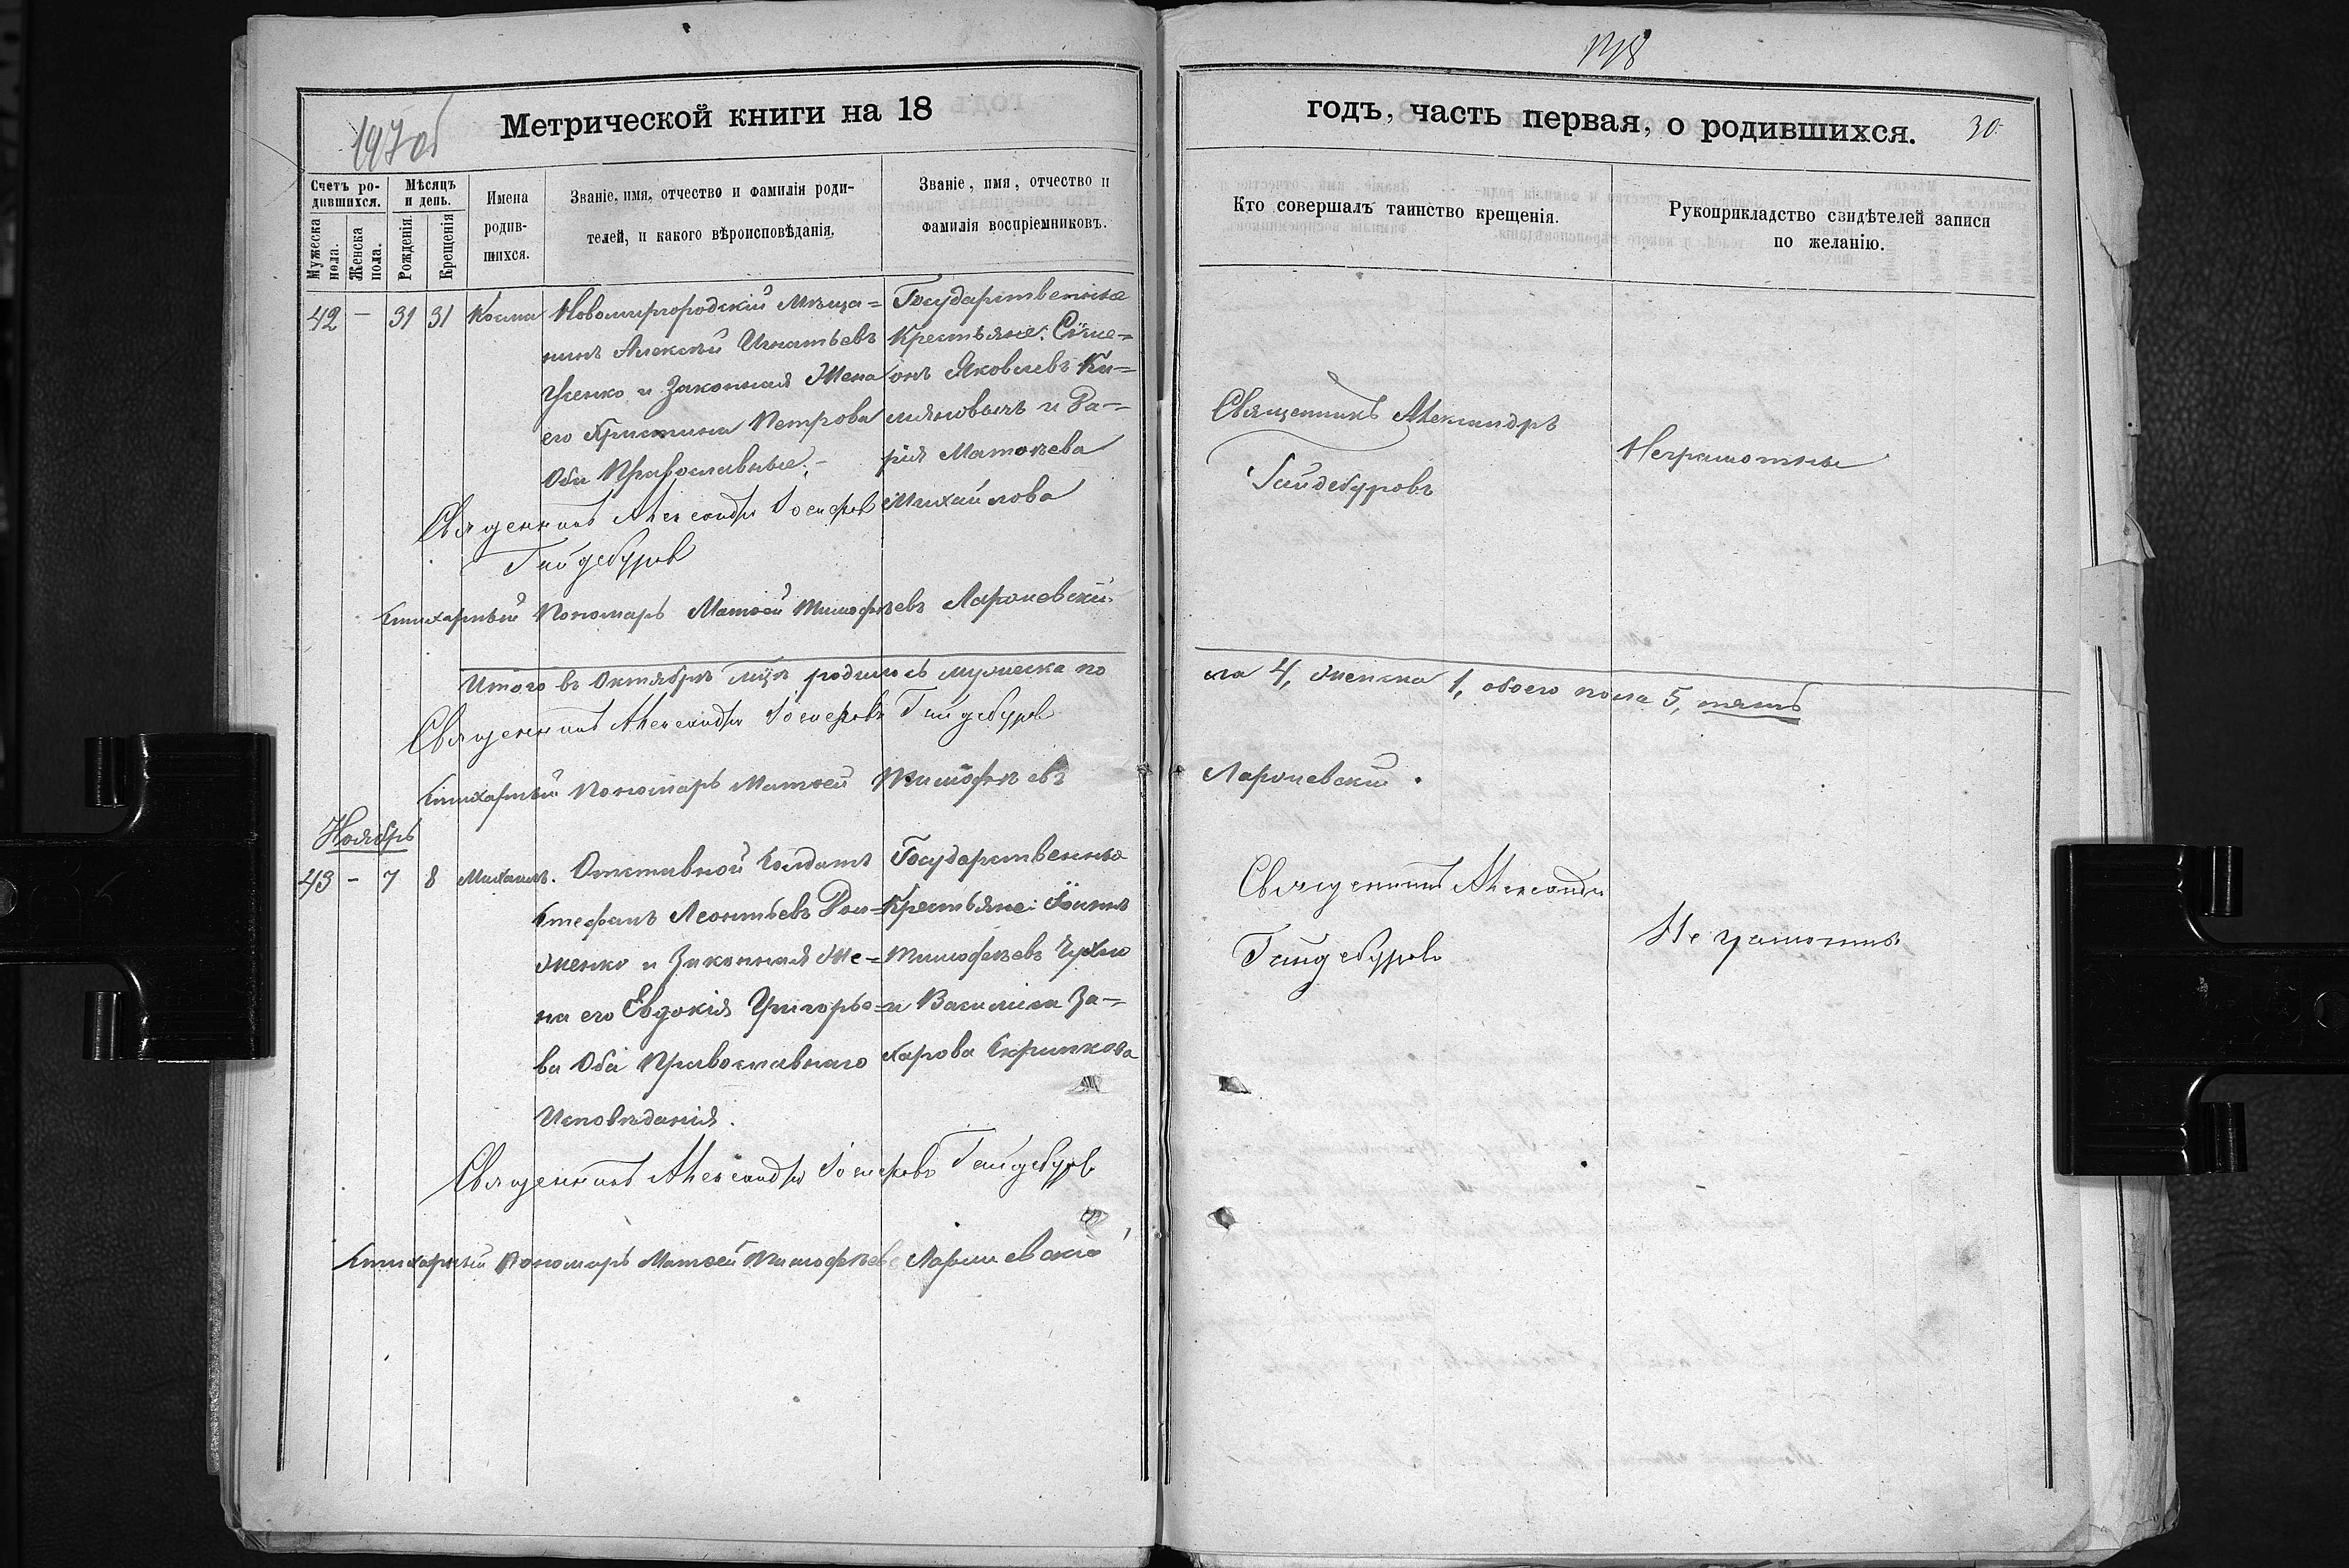 197 об
Метрической книги на 18
Счетъ ро-
дившихся.
Мужеска
пола.
Женска
пола.
Мѣсяцъ
и день.
Рожденія.
Крещенія
Имена
родив-
шихся.
Званіе, имя, отчество и фамилія роди-
телей, и какого вѣроисповѣданія.
Званіе, имя, отчество и
фамилія воспріемниковъ.
42 – 31 31 Косма
Новомиргородскій Мѣща=
нинъ Алексѣй Игнатьевъ
и Законная Жена
его Христина Петрова
Оба Православные.-
Государственные
Крестьяне: Сѵме=
онъ Яковлевъ
и Да=
рія Матѳѣева
Михайлова
Священникъ Александръ Іосифов
Гайдебуров
Стихарный Пономарь Матѳей Тимофѣевъ
Итого въ Октябрѣ мцѣ родилось мужеска по
Священникъ Александръ Іосифовъ Гайдебуров
Стихарный Пономарь Матѳей Тимофѣевъ
Ноябрь
43 – 7 8 Михаилъ.
Отставной Солдатъ
Стефанъ Леонтьевъ
и Законная Же=
на его Евдокія Григорье=
ва Оба Православнаго
Исповѣданія.
Государственные
Крестьяне: Іоаннъ
Тимофѣевъ Чухно
и Василиса За=
харова Скрипкова
Священникъ Александръ Іосифовъ Гайдебуров
Стихарный Пономарь Матѳей Тимофѣевъ
годъ, часть первая, о родившихся.
30
Кто совершалъ таинство крещенія.
Рукоприкладство свидѣтелей записи
по желанію.
Священникъ Александръ
Гайдебуровъ
Неграмотны
ла 4, женска 1, обоего пола 5, пять
Священникъ Александръ
Гайдебуровъ
Неграмотны